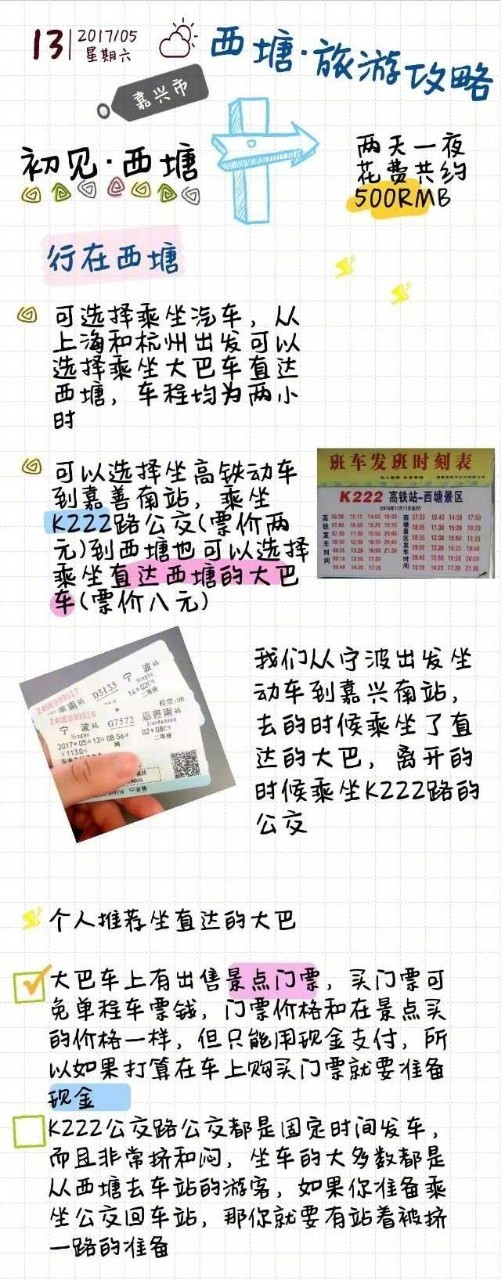 13 2017/05
星期六
西塘·旅游攻略
嘉兴市
初见·西塘
两天一夜
花费共约
500RMB
行在西塘
可选择乘坐汽车，从
上海和杭州出发可以
选择乘坐大巴车直达
西塘，车程均为两小
时
可以选择坐高铁动车
到嘉善南站，乘坐
K222路公交(票价两
元)到西塘也可以选择
乘坐直达西塘的大巴
车(票价八元)
班车发班时刻表
K222 高铁站-西塘景区
高铁发车时间
西塘景区发车时间
宁波站
D3135
宁波站
嘉善南站
2017年05月13日08:56开
二等座
我们从宁波出发坐
动车到嘉兴南站，
去的时候乘坐了直
达的大巴，离开的
时候乘坐K222路的
公交
个人推荐坐直达的大巴
大巴车上有出售景点门票，买门票可
免单程车票钱，门票价格和在景点买
的价格一样，但只能用现金支付，所
以如果打算在车上购买门票就要准备
现金
K222公交路公交都是固定时间发车，
而且非常挤和闷，坐车的大多数都是
从西塘去车站的游客，如果你准备乘
坐公交回车站，那你就要有站着被挤
一路的准备